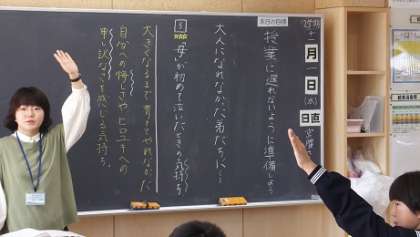 本日の目標
授業に遅れないように準備しよう
大人になれなかった弟たちに…
母が初めて泣いたときの気持ち
大きくなるまで育ててやれなかった
自分への悔しさやヒロユキへの
申し訳なさを感じる気持ち。
月
一日
日直